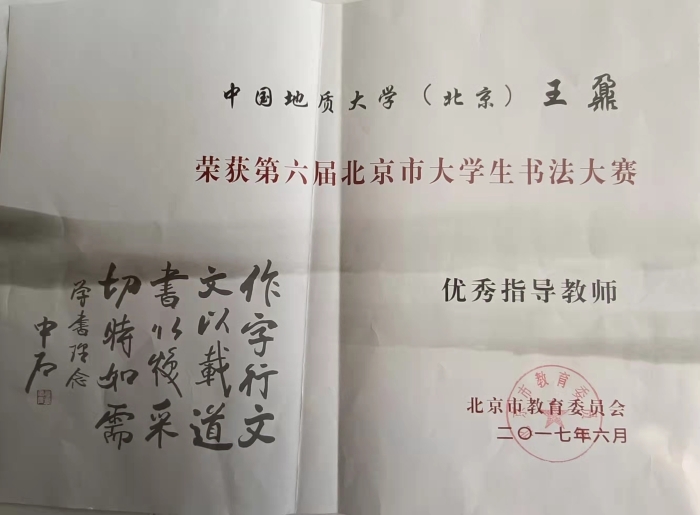 中国地质大学（北京）王鼐
荣获第六届北京市大学生书法大赛
优秀指导教师
北京市教育委员会
二〇一七年六月
作字行文
文以载道
書以焕采
切時如需
学書理念
中石